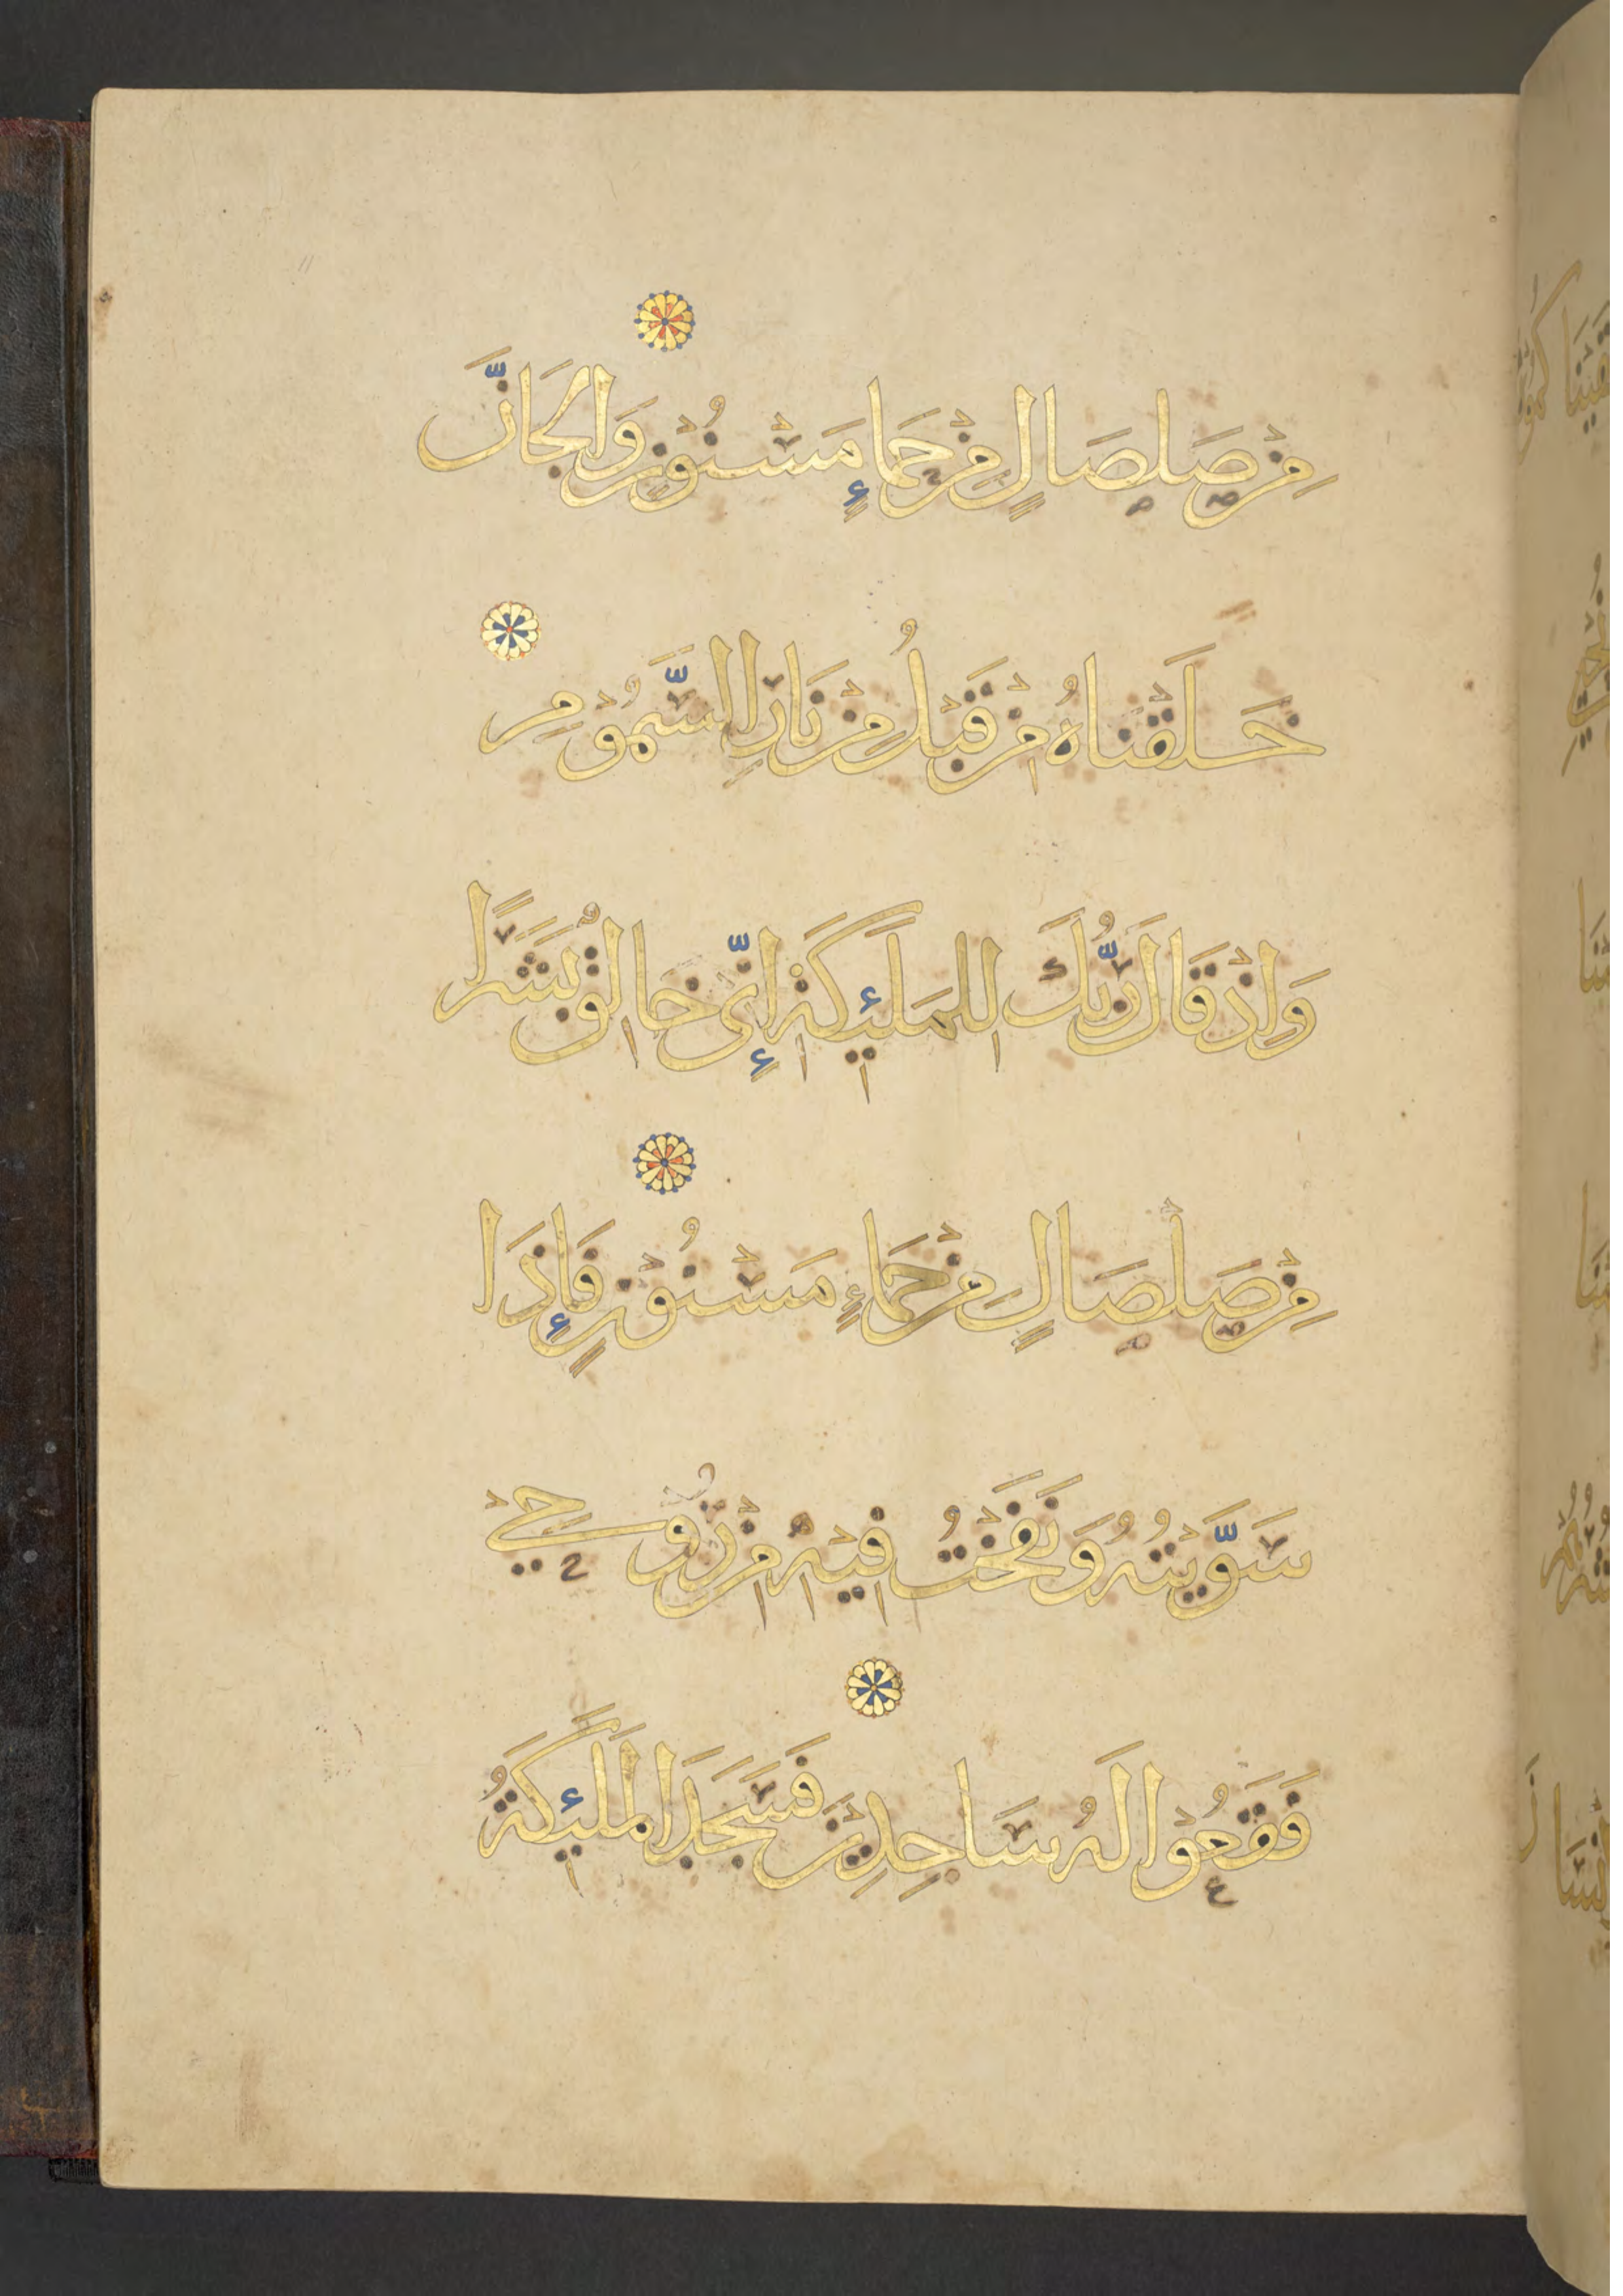 مِنْ صَلْصَالٍ مِنْ حَمَإٍ مَسْنُوْنٍ وَالْجَانَّ
خَلَقْنَاهُ مِنْ قَبْلُ مِنْ نَارِ السَّمُوْمِ
وَاِذْ قَالَ رَبُّكَ لِلْمَلَئِكَةِ اِنِّى خَالِقٌ بَشَرًا
مِنْ صَلْصَالٍ مِنْ حَمَاءٍ مَسْنُوْنٍ فَإِذَا
سَوَّيْتُهُ وَنَفَخْتُ فِيْهِ مِنْ رُوْحِيْ
فَقَعُوْا لَهُ سَاجِدِيْنَ فَسَجَدَ الْمَلَئِكَةُ